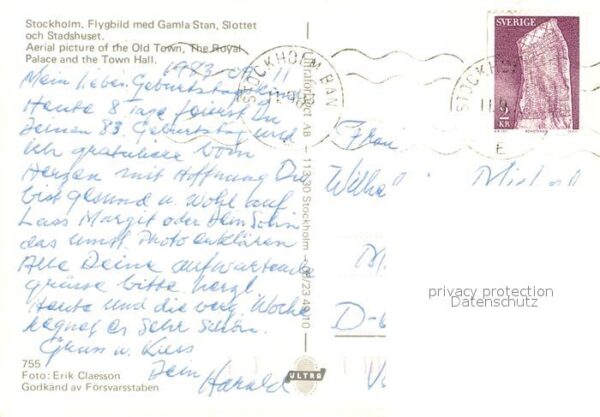 Stockholm, Flygbild med Gamla Stan, Slottet
och Stadshuset.
Aerial picture of the Old Town, The Royal
Palace and the Town Hall.
1983
Mein lieber Geburtstags
Heute 8 Tage feierst Du
Deinen 83 Geburtstag und
ich gratuliere vom
Herzen mit Hoffnung Du
bist gesund u. wohl auf
Lass Margit oder Dein Sohn
das Photo erklären
Alle Deine aufwartende
grüsse bitte herzl.
Heute und die verg. Woche
regnet er sehr schön.
Gruss u. Kuss
Dein Harald
755
Foto: Erik Claesson
Godkänd av Försvarsstaben
AB 113 30 Stockholm
ULTRA
STOCKHOLM BAN
STOCKHO
SVERIGE
2
KR
Frau
Wilh
M
D-6
V
privacy protection
Datenschutz